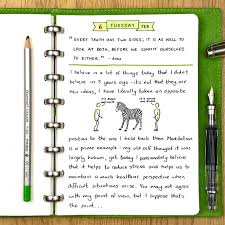 6 TUESDAY FEB
"EVERY TRUTH HAS TWO SIDES; IT IS AS WELL TO
LOOK AT BOTH, BEFORE WE COMMIT OURSELVES
TO EITHER." - Aesop
I believe in a lot of things today that I didn't
believe in 5 years ago - it's not that they are
new ideas, I have literally taken an opposite
position to the one I held back then. Meditation
is a prime example - my old self thought it was
largely hokum, yet today I passionately believe
that it helps to reduce stress and helps us to
maintain a much healthier perspective when
difficult situations arise. You may not agree
with my point of view, but I suppose that's
the point...